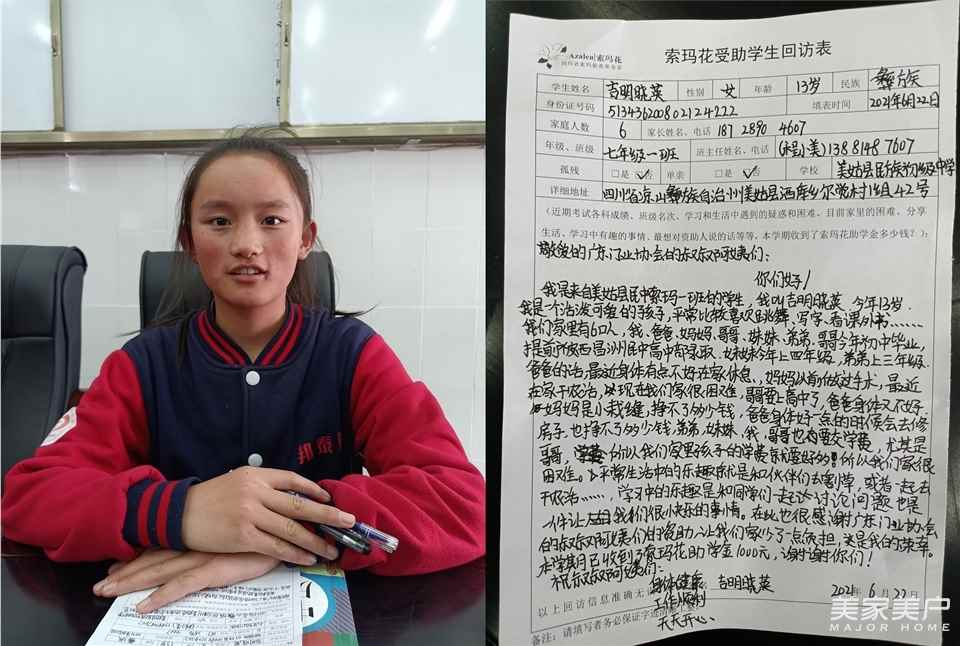 邦泰
Azalea|索玛花
索玛花受助学生回访表
学生姓名 吉明晓英 性别 女 年龄 13岁 民族 彝族
身份证号码 513436200802124222 填表时间 2021年6月22日
家庭人数 6 家长姓名、电话 187 2890 4607
年级、班级 七年级一班 班主任姓名、电话 13881487607
孤残 □是 否 单亲 □是 否 学校 美姑县民族初级中学
详细地址 四川省凉山彝族自治州美姑县洒库乡尔觉村1组42号
(近期考试各科成绩、班级名次、学习和生活中遇到的疑惑和困难、目前家里的困难、分享
生活、学习中有趣的事情、最想对资助人说的话等等,本学期收到了索玛花助学金多少钱?):
敬爱的广东门业协会的叔叔阿姨们:
你们好!
我是来自美姑县民中索玛一班的学生,我叫吉明晓英,今年13岁.
我是一个活泼可爱的女孩子,平常比较喜欢跳舞、写字、看课外书……
我们家里有6口人,我、爸爸、妈妈、哥哥、妹妹、弟弟.哥哥今年初中毕业,
提前被西昌州民中高中部录取.妹妹今年上四年级,弟弟上三年级.
爸爸的话,最近身体有点不好在家休息、,妈妈以前做过手术,最近
在家干农活,现在我们家很困难,哥哥要上高中了,爸爸身体又不好.
妈妈是小裁缝,挣不了多少钱,爸爸身体好一点的时候会去修
房子.也挣不了多少钱,弟弟、妹妹、我、哥哥也要交学费,尤其是
哥哥.所以我们家里孩子的学费就差好多!所以我们家很
困难。平常生活中的乐趣就是和伙伴们去割草,或者一起去
干农活……,学习中的乐趣是和同学们一起讨论问题也是
一件让我们很快乐的事情。在此也很感谢广东门业协会
的叔叔阿姨们的资助,让我们家少了一点负担,是我的荣幸。
本学期已收到了索玛花助学金1000元,谢谢你们!
祝叔叔阿姨们:
身体健康 吉明晓英
工作顺利
天天开心、
以上回访信息准确无 2021年6月22日
备注:请填写者务必保证字迹
美家美户
MAJOR HOME